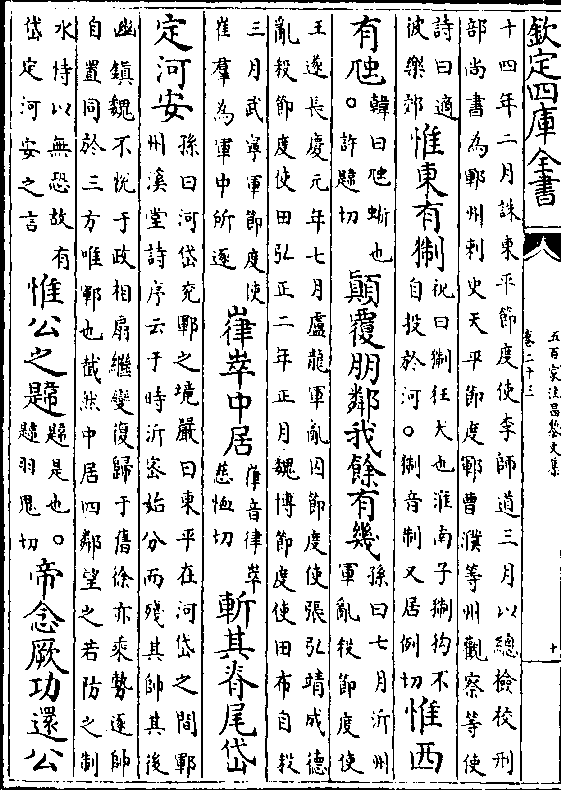 欽定四庫全書
五百家注昌黎文集
卷二十三
十
十四年二月誅東平節度使李師道三月以總檢校刑
部尚書為鄆州刺史天平節度鄆曹濮等州觀察等使
詩曰適彼樂郊惟東有猘祝曰猘狂犬也淮南子猘狗不自投於河○猘音制又居例切惟西
有虺韓曰虺蜥也○許韙切顛覆朋鄰我餘有幾孫曰七月沂州軍亂殺節度使
王遂長慶元年七月盧龍軍亂囚節度使張弘靖成德
亂殺節度使田弘正二年正月魏博節度使田布自殺
三月武寧軍節度使崔羣為軍中所逐嵂崒中居嵂音律崒慈恤切斬其脊尾岱
定河安孫曰河岱兗鄆之境嚴曰東平在河岱之間鄆州溪堂詩序云于時沂密始分而殘其帥其後
幽鎮魏不悅于政相扇繼變復歸于舊徐亦乘勢逐帥
自置同於三方唯鄆也截然中居四鄰望之若防之制
水恃以無恐故有岱定河安之言惟公之韙韙是也○韙羽鬼切帝念厥功還公